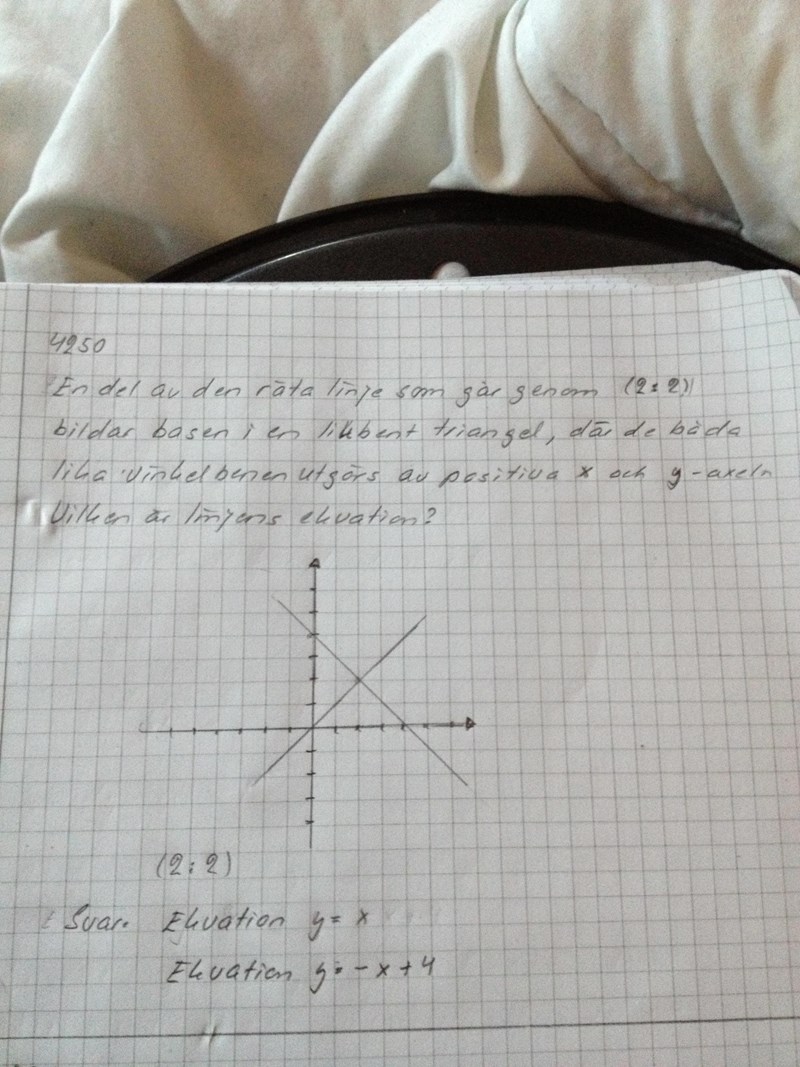 4250
En del av den räta linje som går genom (2:2)
bildar basen i en likbent triangel, där de båda
lika vinkelbenen utgörs av positiva x och y-axeln
Vilken är linjens ekvation?
(2:2)
Svar. Ekvation y = x
Ekvation y = -x+4